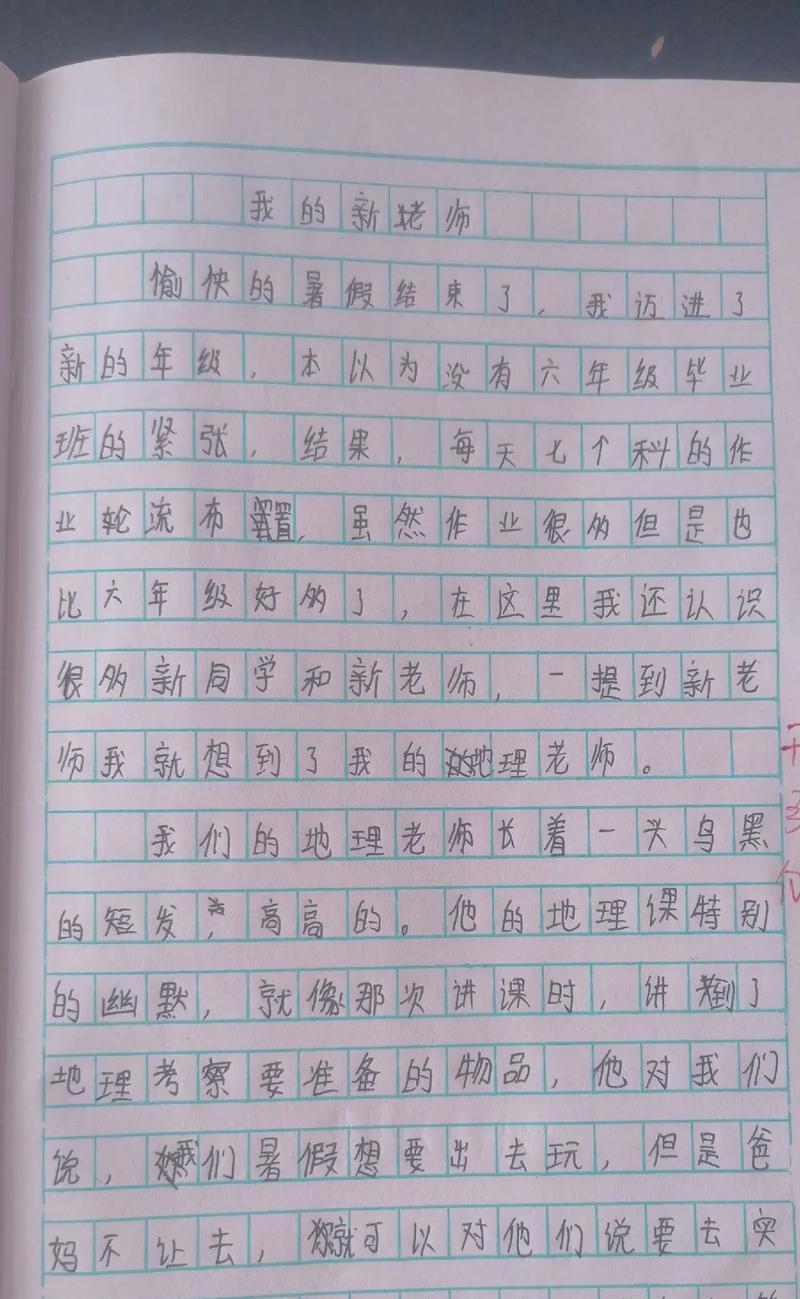 我的新老师
愉快的暑假结束了，我迈进了
新的年级，本以为没有六年级毕业
班的紧张，结果，每天七个科的作
业轮流布置，虽然作业很多但是也
比六年级好多了，在这里我还认识
很多新同学和新老师，一提到新老
师我就想到了我的地理老师。
我们的地理老师长着一头乌黑
的短发，高高的。他的地理课特别
的幽默，就像那次讲课时，讲到了
地理考察要准备的物品，他对我们
说，我们暑假想要出去玩，但是爸
妈不让去，你就可以对他们说要去实